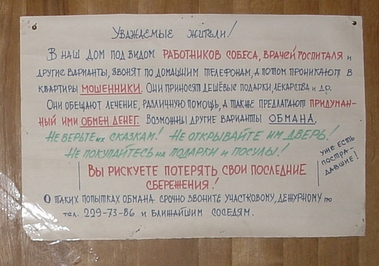 Уважаемые жители!
В наш дом под видом работников собеса, врачей госпиталя и
другие варианты, звонят по домашним телефонам, а потом проникают в
квартиры мошенники. Они приносят дешёвые подарки, лекарства и др.
Они обещают лечение, различную помощь, а также предлагают придуман-
ный ими обмен денег. Возможны другие варианты обмана.
Не верьте их сказкам! Не открывайте им дверь!
Не покупайтесь на подарки и посулы!
Вы рискуете потерять свои последние
сбережения!
уже есть
постра-
давшие!
О таких попытках обмана срочно звоните участковому, дежурному по
тел. 299-73-86 и ближайшим соседям.